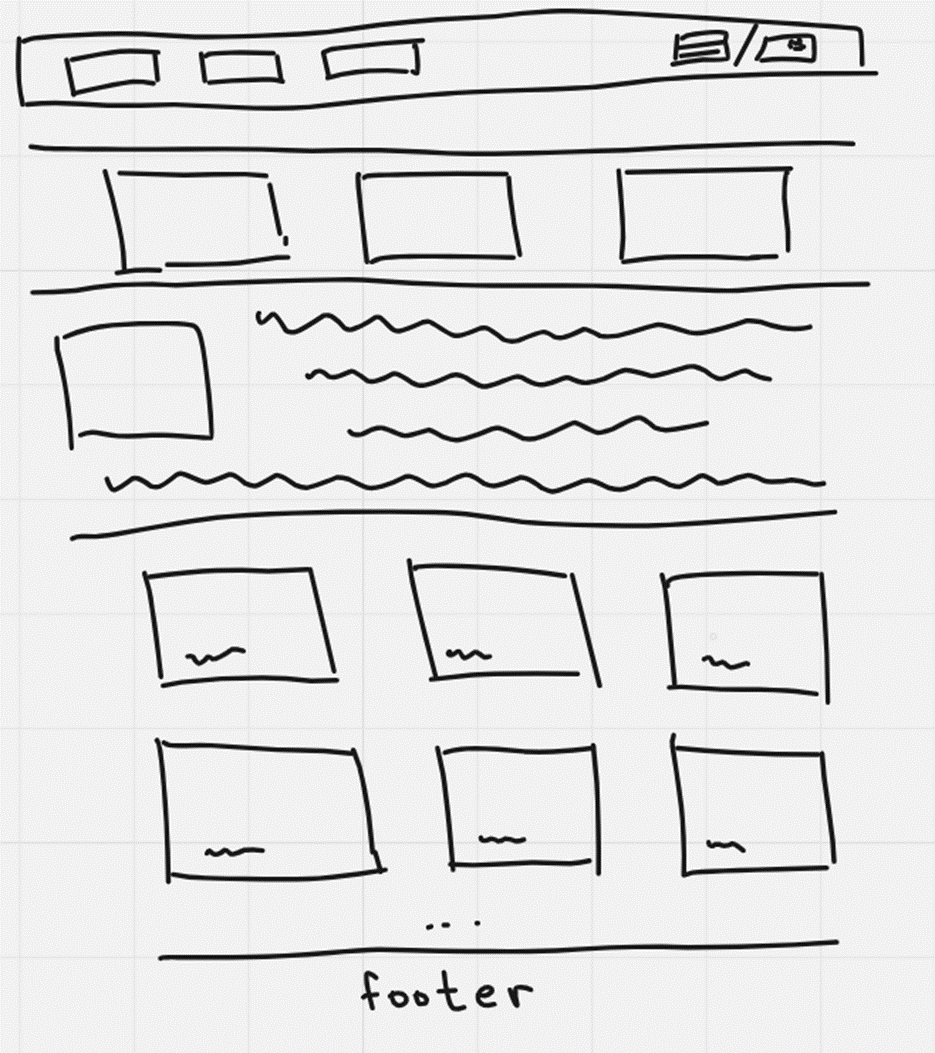 ...
footer